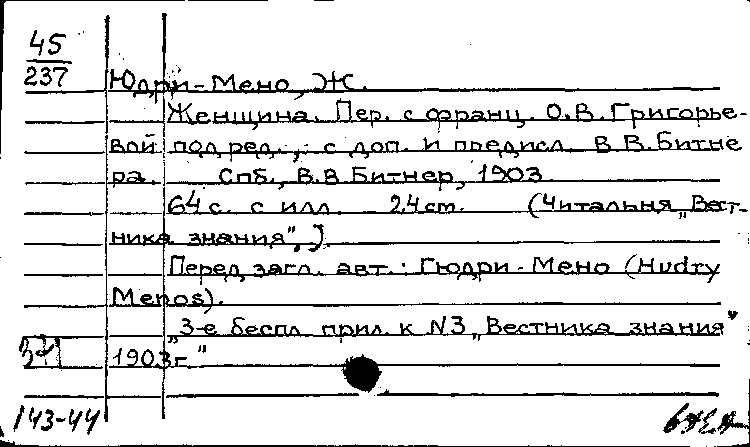 45
237
Юдри-Мено, Ж.
Женщина. Пер. с франц. О.В.Григорье-
вой под ред., с доп. и предисл. В.В.Битне
ра. Спб., В.В Битнер, 1903.
64 с. с илл. 24 cm. (Читальня „Вест-
ника знания".)
Перед загл. авт.: Гюдри-Мено (Hudry
Menos).
„3-е беспл. прил. к N3 „Вестника знания"
1903г."
143-44